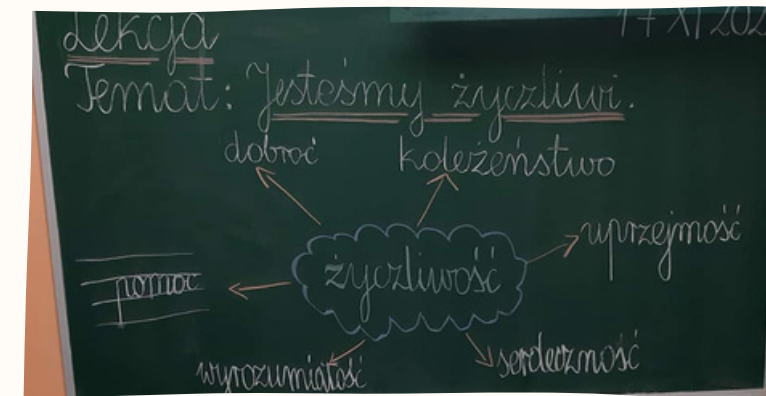 Lekcja
17 XI 202
Temat: Jesteśmy życzliwi.
dobroć
koleżeństwo
uprzejmość
życzliwość
pomoc
wyrozumiałość
serdeczność